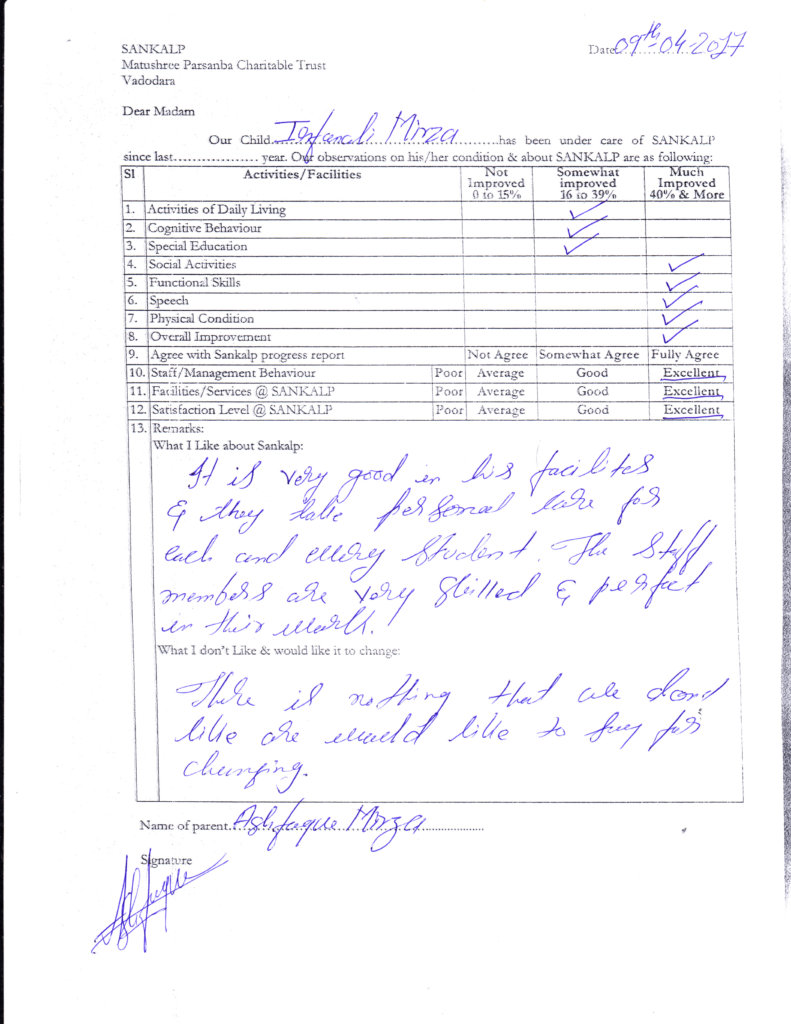 SANKALP
Date 09th-04-2017
Matushree Parsanba Charitable Trust
Vadodara
Dear Madam
Our Child Irfanali Mirza has been under care of SANKALP
since last.................. year. Our observations on his/her condition & about SANKALP are as following:
Sl Activities/Facilities Not Improved 0 to 15% Somewhat improved 16 to 39% Much Improved 40% & More
1. Activities of Daily Living ✓
2. Cognitive Behaviour ✓
3. Special Education ✓
4. Social Activities ✓
5. Functional Skills ✓
6. Speech ✓
7. Physical Condition ✓
8. Overall Improvement ✓
9. Agree with Sankalp progress report Not Agree Somewhat Agree Fully Agree
10. Staff/Management Behaviour Poor Average Good Excellent
11. Facilities/Services @ SANKALP Poor Average Good Excellent
12. Satisfaction Level @ SANKALP Poor Average Good Excellent
13. Remarks:
What I Like about Sankalp:
It is very good in his facilites
& they take personal care for
each and every student. The Staff
members are very skilled & perfect
in their work!
What I don't Like & would like it to change:
There is nothing that we dont
like are would like to say for
changing.
Name of parent Ashfaque Mirza
Signature
Ashfaque